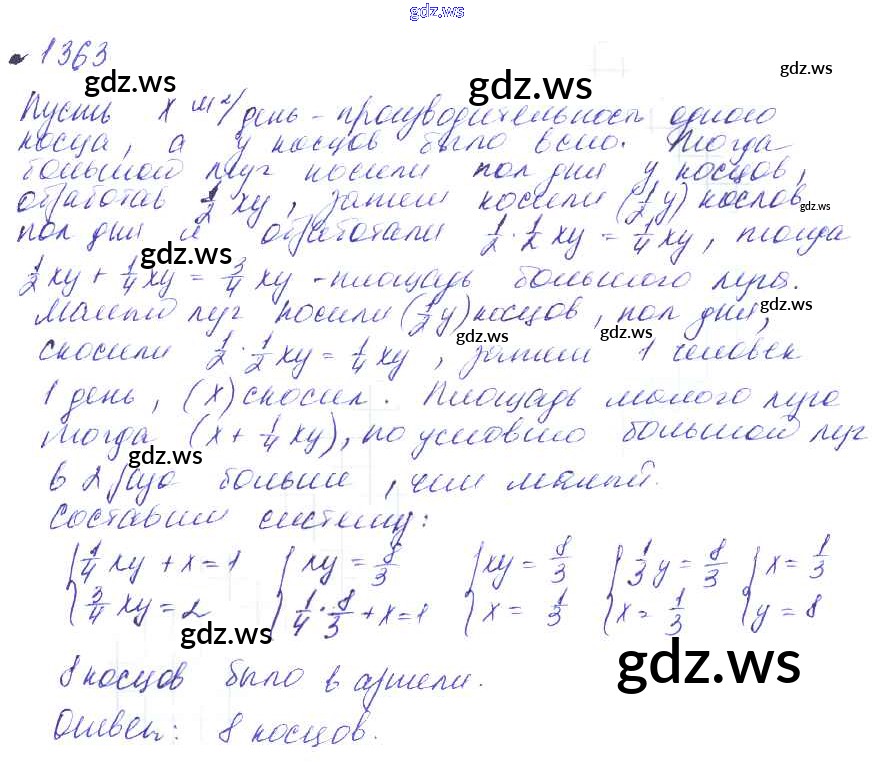 gdz.ws
1363
gdz.ws gdz.ws gdz.ws
Пусть x м²/день - производительность одного
косца, а y косцов было всно. Тогда
большой луг косили пол дня y косцов,
обработав 1/2 xy, затем косили (1/2 y) косцов gdz.ws
пол дня и обработали 1/2 · 1/2 xy = 1/4 xy, тогда
gdz.ws
1/2 xy + 1/4 xy = 3/4 xy - площадь большого луга.
Малый луг косили (1/2 y) косцов, пол дня, gdz.ws
gdz.ws gdz.ws
скосили 1/2 · 1/2 xy = 1/4 xy, затем 1 человек
1 день, (x) скосил. Площадь малого луга
тогда (x + 1/4 xy), по условию большой луг
gdz.ws
в 2 раза больше, чем малый.
Составим систему:
{ 1/4 xy + x = 1 { xy = 8/3 { xy = 8/3 { 1/3 y = 8/3 { x = 1/3
{ 3/4 xy = 2 { 1/4 · 8/3 + x = 1 { x = 1/3 { x = 1/3 { y = 8
gdz.ws gdz.ws
8 косцов было в артели.
Ответ: 8 косцов.